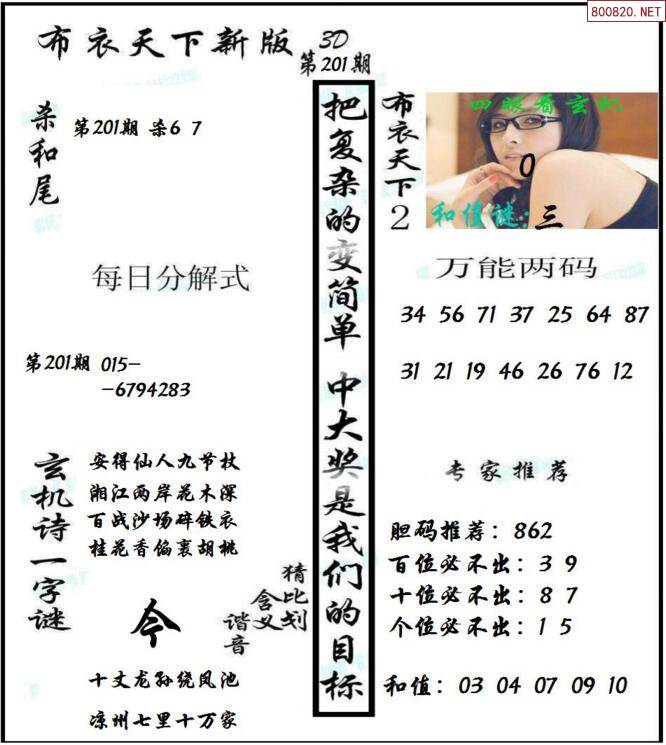 800820.NET
布衣天下新版 3D
第201期
杀和尾
第201期 杀6 7
每日分解式
第201期 015-
-6794283
玄机诗一字谜
安得仙人九节杖
湘江两岸花木深
百战沙场碎铁衣
桂花香馅裹胡桃
猜比划
含义
谐音
今
十丈龙孙绕凤池
凉州七里十万家
把复杂的变简单 中大奖是我们的目标
布衣天下2
四眼看玄机
0
和值谜:三
万能两码
34 56 71 37 25 64 87
31 21 19 46 26 76 12
专家推荐
胆码推荐：862
百位必不出：3 9
十位必不出：8 7
个位必不出：1 5
和值：03 04 07 09 10